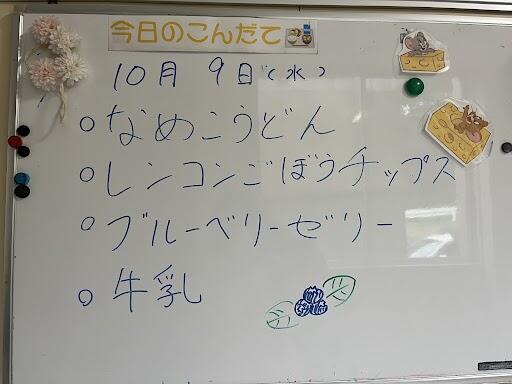 今日のこんだて
10月 9日(水)
○なめこうどん
○レンコンごぼうチップス
○ブルーベリーゼリー
○牛乳